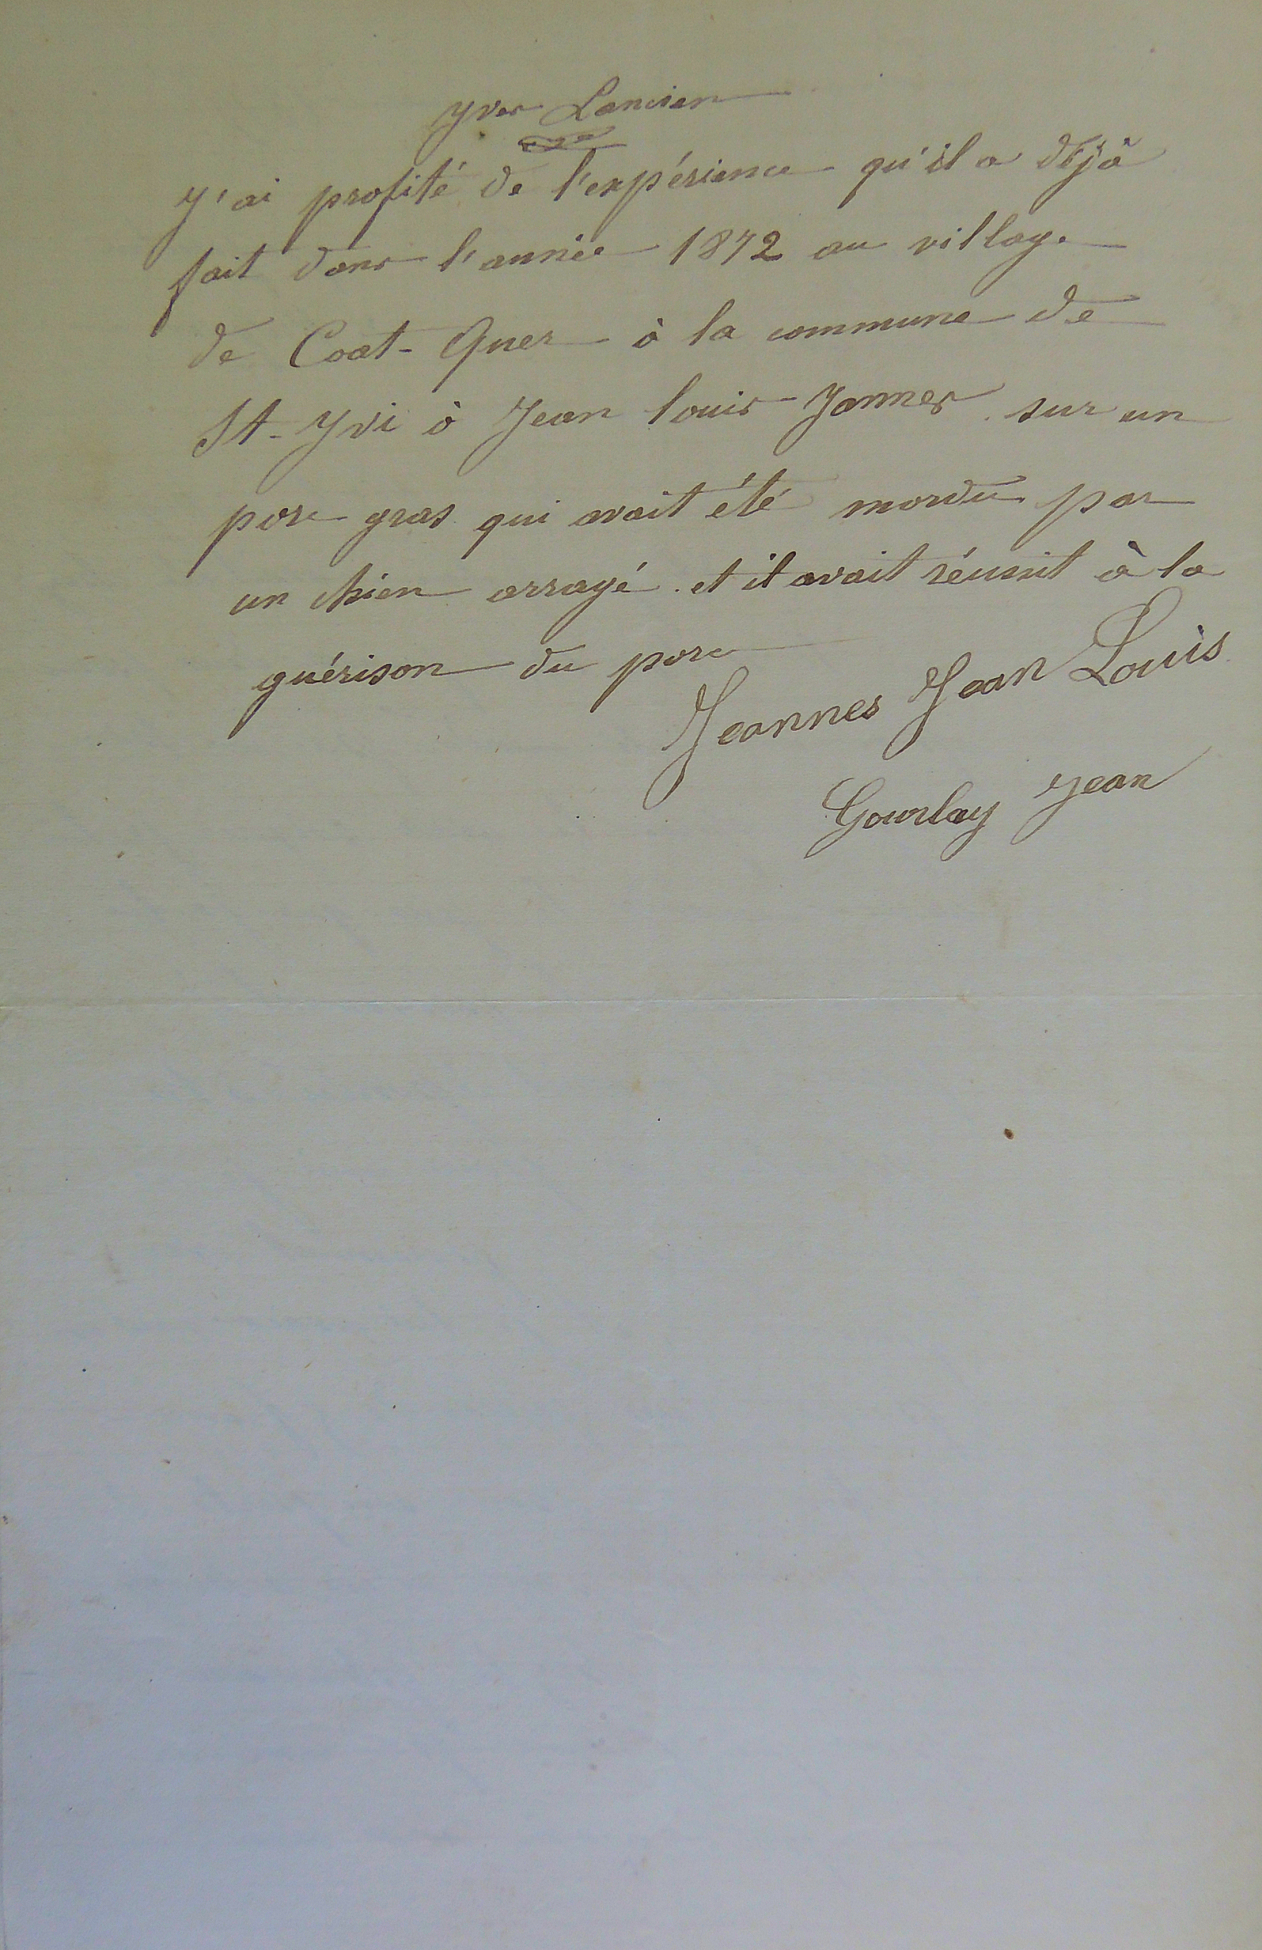 Yves Lancien
J'ai profité de l'expérience qu'il a déjà
fait dans l'année 1872 au village
de Coat-Quer à la commune de
St-Yvi à Jean louis Jannes sur un
porc gras qui avait été mordu par
un chien arragé et il avait réunit à la
guérison du porc
Jeannes Jean Louis
Gourlay Jean